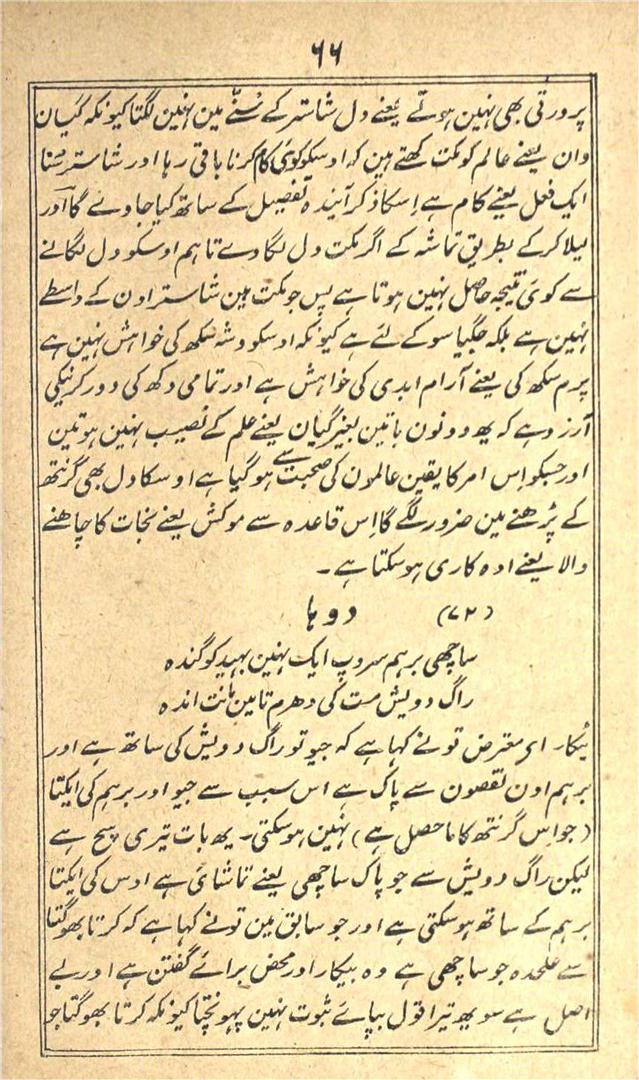 ۶۶
پرورتی بھی نہین ہوتے یعنے دل شاستر کے سُننے مین نہین لگتا کیونکہ گیان
وان یعنے عالم کو مکت کہتے ہین کہ اوسکو کوئی کام کرنا باقی رہا اور شاستر سُننا
ایک فعل یعنے کام ہے اِسکا ذکر آیندہ تفصیل کے ساتھ کیا جاوے گا اور
لیلا کرکے بطریق تماشہ کے اگر مکت دل لگاوے تاہم اوسکو دل لگانے
سے کوئی نتیجہ حاصل نہین ہوتا ہے پس جو مکت ہین شاستر اون کے واسطے
نہین ہے بلکہ جگیاسو کے لئے ہے کیونکہ اوسکو وشہ سُکھ کی خواہش نہین ہے
پرم سکھ کی یعنے آرام ابدی کی خواہش ہے اور تمامی دکھ کی دور کرنیکی
آرزو ہے کہ یھ دونون باتین بغیر گیان یعنے علم کے نصیب نہین ہوتین
اور جسکو اِس امر کا یقین عالمون کی صحبت سے ہو گیا ہے اوسکا دل بھی گرنتھ
کے پڑھنے مین ضرور لگے گا اِس قاعدہ سے موکش یعنے نجات کا چاھنے
والا یعنے ادہ کاری ہو سکتا ہے ۔
(۷۲) دوہا
ساچھی برہم سروپ ایک نہین بہید کو گندہ
راگ دویش مت کی دھرم تامین مانت اندہ
ٹیکا۔ ای معترض تونے کہا ہے کہ جیو تو راگ دویش کی ساتھ ہے اور
برہم اون نقصون سے پاک ہے اس سبب سے جیو اور برہم کی ایکتا
(جو اِس گرنتھ کا ماحصل ہے) نہین ہو سکتی۔ یھ بات تیری سچ ہے
لیکن راگ دویش سے جو پاک ساچھی یعنے تماشائی ہے اوس کی ایکتا
برہم کے ساتھ ہو سکتی ہے اور جو سابق مین تونے کہا ہے کہ کرتا بھوگتا
سے علحدہ جو ساچھی ہے وہ بیکار اور محض برائے گفتن ہے اور بے
اصل ہے سو یھ تیرا قول بپائے ثبوت نہین پہونچتا کیونکہ کرتا بھوگتا جو